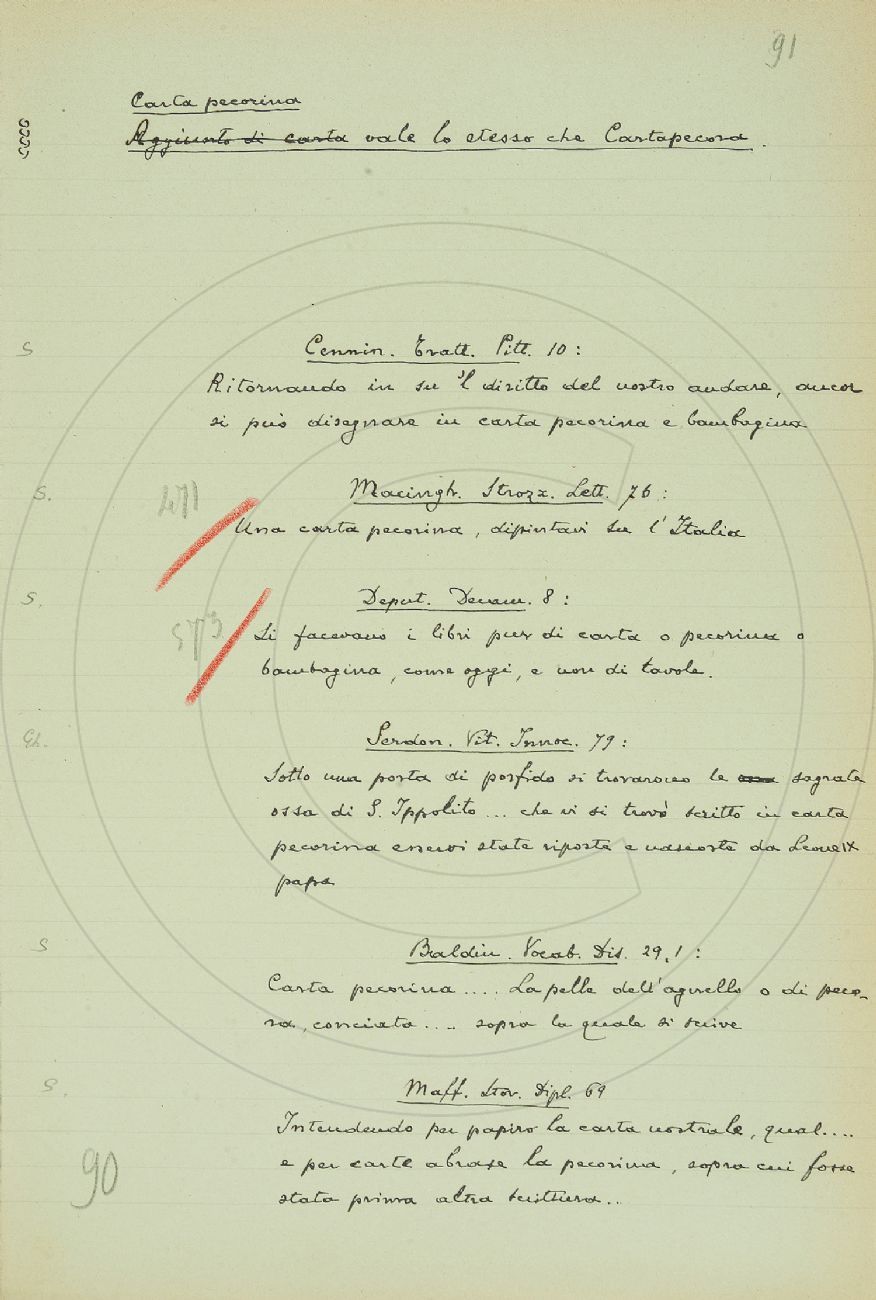 91
Carta pecorina
Aggiunto di carta vale lo stesso che Cartapecora.
S
Cennin. Tratt. Pitt. 10:
Ritornando in su 'l diritto del vostro andare, ancor
si può disegnare in carta pecorina e bambagina
S.
Macingh. Strozz. Lett. 76:
1471
Una carta pecorina, dipintavi su l'Italia
S.
Deput. Decam. 8:
1573
Si facevano i libri pur di carta o pecorina o
bambagina, come oggi, e non di tavole.
Gh.
Serdon. Vit. Innoc. 79:
Sotto una porta di porfido si trovarono le sagrate
ossa di S. Ippolito... che vi si trovò scritto in carta
pecorina esservi state riposte e nascoste da Leone IX
papa
S
Baldin. Vocab. Dis. 29,1:
Carta pecorina.... La pelle dell'agnello o di peco-
ra, conciata.... sopra la quale si scrive
S.
Maff. Stor. Dipl. 69
Intendendo per papiro la carta nostrale, qual....
e per carte abrase la pecorina, sopra cui fosse
stata prima altra scrittura..
90